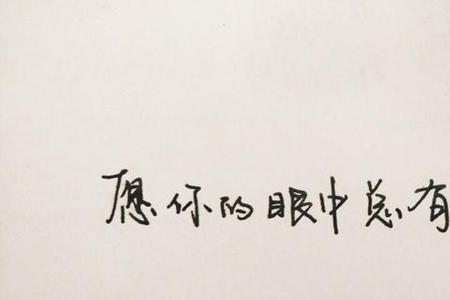 愿你的眼中总有